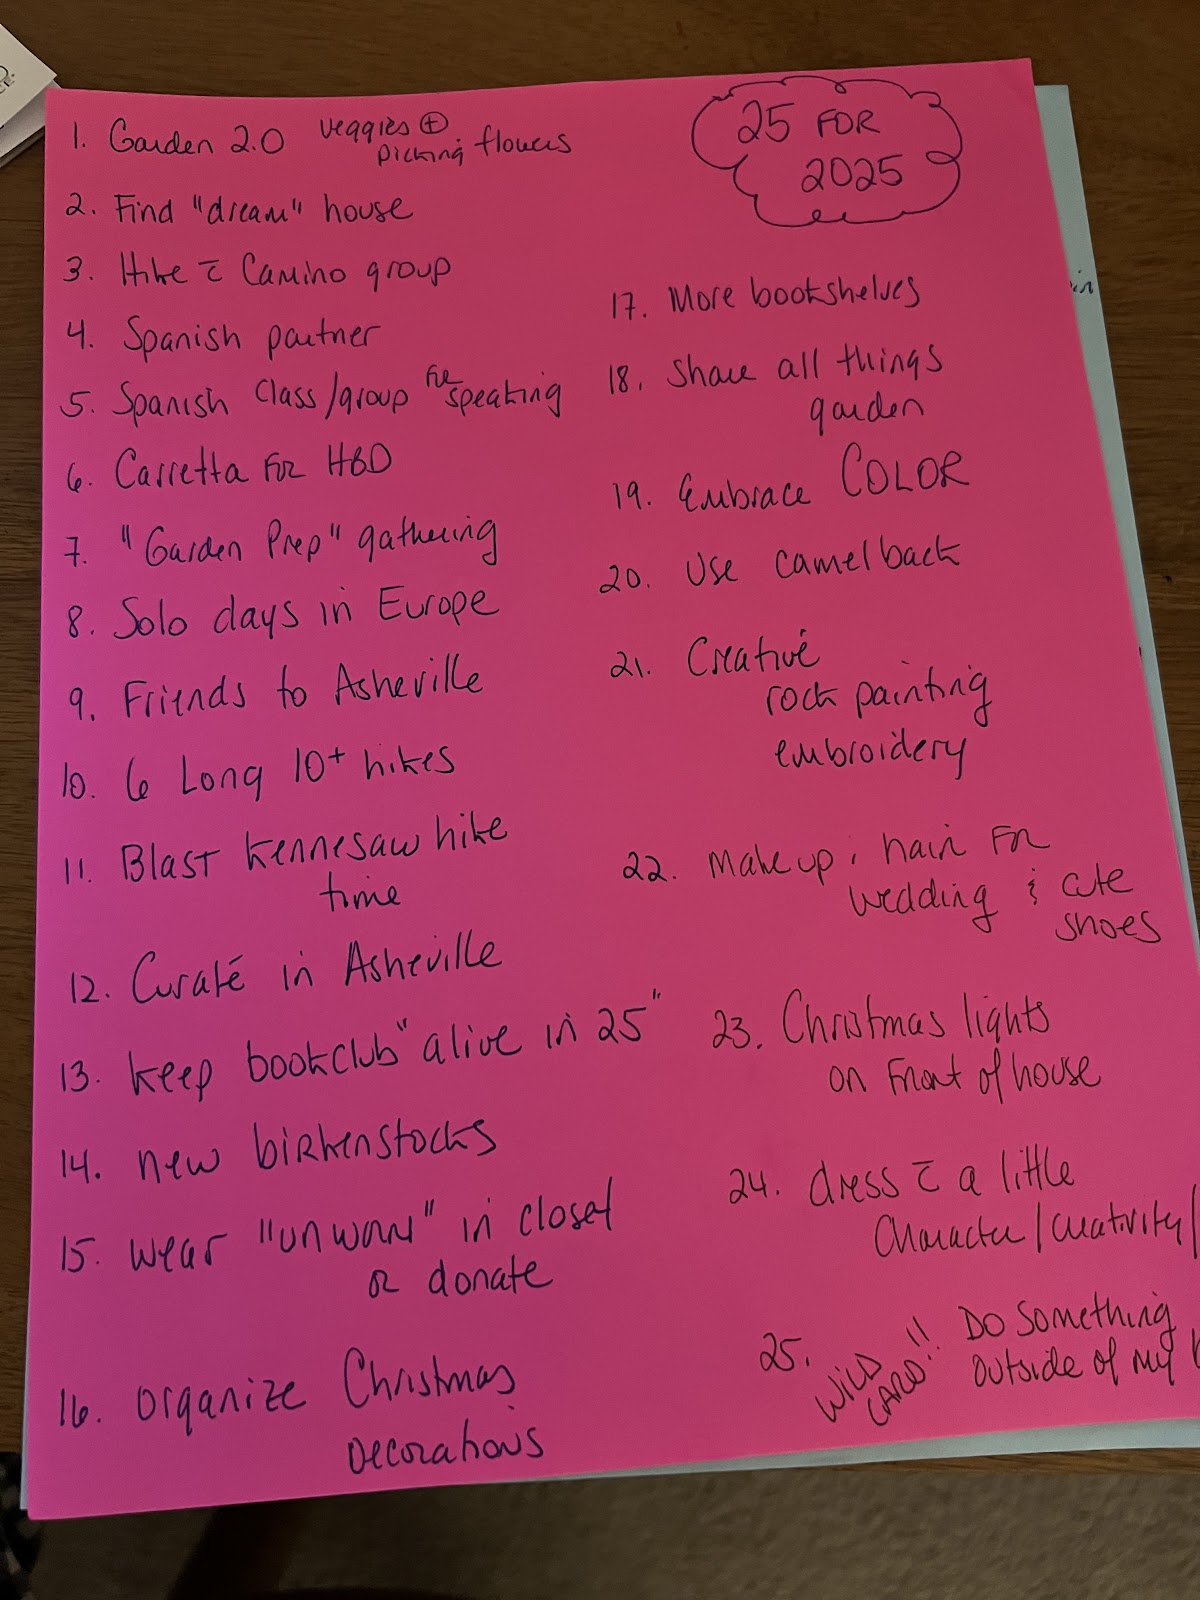 25 FOR
2025
1. Garden 2.0 veggies +
picking flowers
2. Find "dream" house
3. Hike c̄ Camino group
4. Spanish partner
5. Spanish class/group for speaking
6. Carretta FOR HBD
7. "Garden Prep" gathering
8. Solo days in Europe
9. Friends to Asheville
10. 6 Long 10+ hikes
11. Blast Kennesaw hike
time
12. Curaté in Asheville
13. keep bookclub "alive in 25"
14. new birkenstocks
15. wear "unworn" in closet
or donate
16. organize Christmas
Decorations
17. More bookshelves
18. Share all things
garden
19. Embrace COLOR
20. Use camelback
21. Creative
rock painting
embroidery
22. Make up & hair FOR
wedding & cute
shoes
23. Christmas lights
on Front of house
24. dress c̄ a little
Character/creativity/
25. WILD
CARD!! Do Something
outside of my